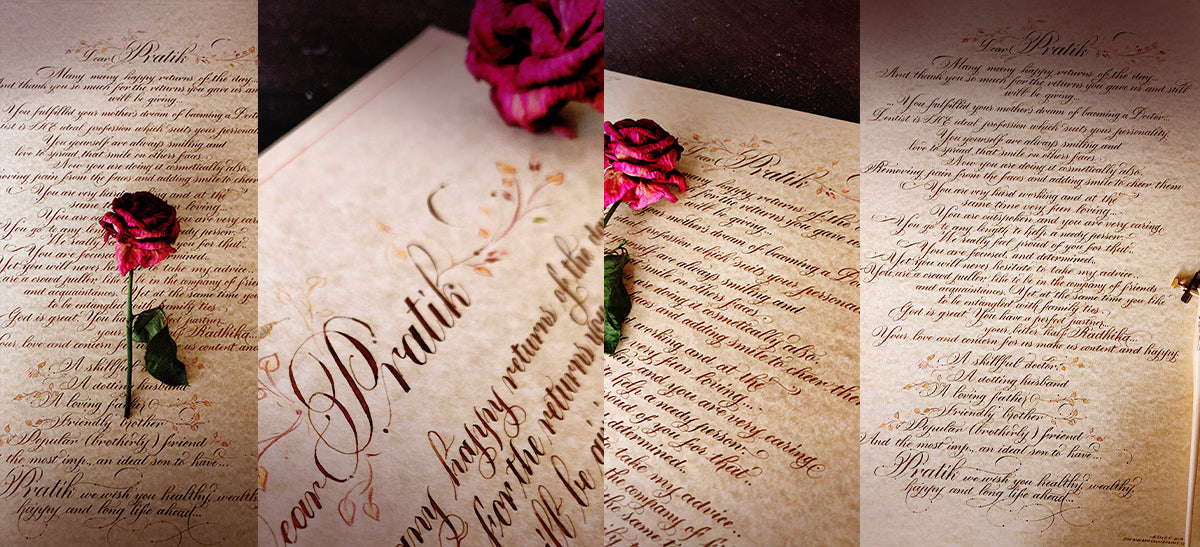 Dear Pratik
Many many happy returns of the day...
And thank you so much for the returns you gave us and
will be giving...
You fulfilled your mother's dream of becoming a Doctor
Dentist is THE ideal profession which suits your personality
You yourself are always smiling and
love to spread that smile on others faces.
Now you are doing it cosmetically also.
Removing pain from the faces and adding smile to cheer
You are very hard
same loving...
You are you are very
You go to any length ready person.
He really for that.
You are focused
Yet you will never to take my advice..
You are a crowd puller, like to be in the company of
and acquaintances. at the same time you
to be entangled family ties.
God is great. You have perfect partner
your Radhika...
Your love and concern for make us content and
A skillful
A dotting husband
A loving father
Friendly brother
Popular (brotherly) friend
the most imp., an ideal son to have...
Pratik we wish you healthy, wealthy
happy and long life ahead...
Dear Pratik
many happy returns of the
for the returns you
will be
Dear Pratik
happy returns of the
for the returns you gave
will be giving...
mother's dream of becoming a
profession which suits your
are always smiling and
smile on others faces.
doing it cosmetically also.
and adding smile to cheer
working and at the
very fun loving...
and you are very caring
help a needy person.
proud of you for that.
determined.
take my advice..
the company of
the same
Dear Pratik
Many many happy returns of the day...
And thank you so much for the returns you gave us and still
will be giving...
...You fulfilled your mother's dream of becoming a Doctor..
Dentist is THE ideal profession which suits your personality.
You yourself are always smiling and
love to spread that smile on others faces.
Now you are doing it cosmetically also.
Removing pain from the faces and adding smile to cheer them
You are very hard working and at the
same time very fun loving...
You are outspoken and you are very caring
You go to any length to help a needy person.
He really feel proud of you for that..
You are focused, and determined.
Yet you will never hesitate to take my advice..
You are a crowd puller, like to be in the company of friends
and acquaintances. Yet at the same time you like
to be entangled in family ties.
God is great. You have a perfect partner
your better half Radhika...
Your love and concern for us make us content and happy.
A skillful doctor.
A dotting husband
A loving father
Friendly brother
Popular (brotherly) friend
And the most imp., an ideal son to have...
Pratik we wish you healthy, wealthy,
happy and long life ahead...